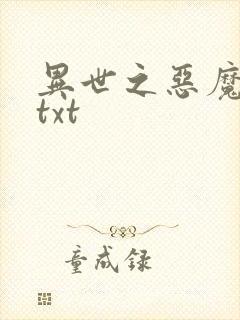 異世之惡魔
txt
童成録